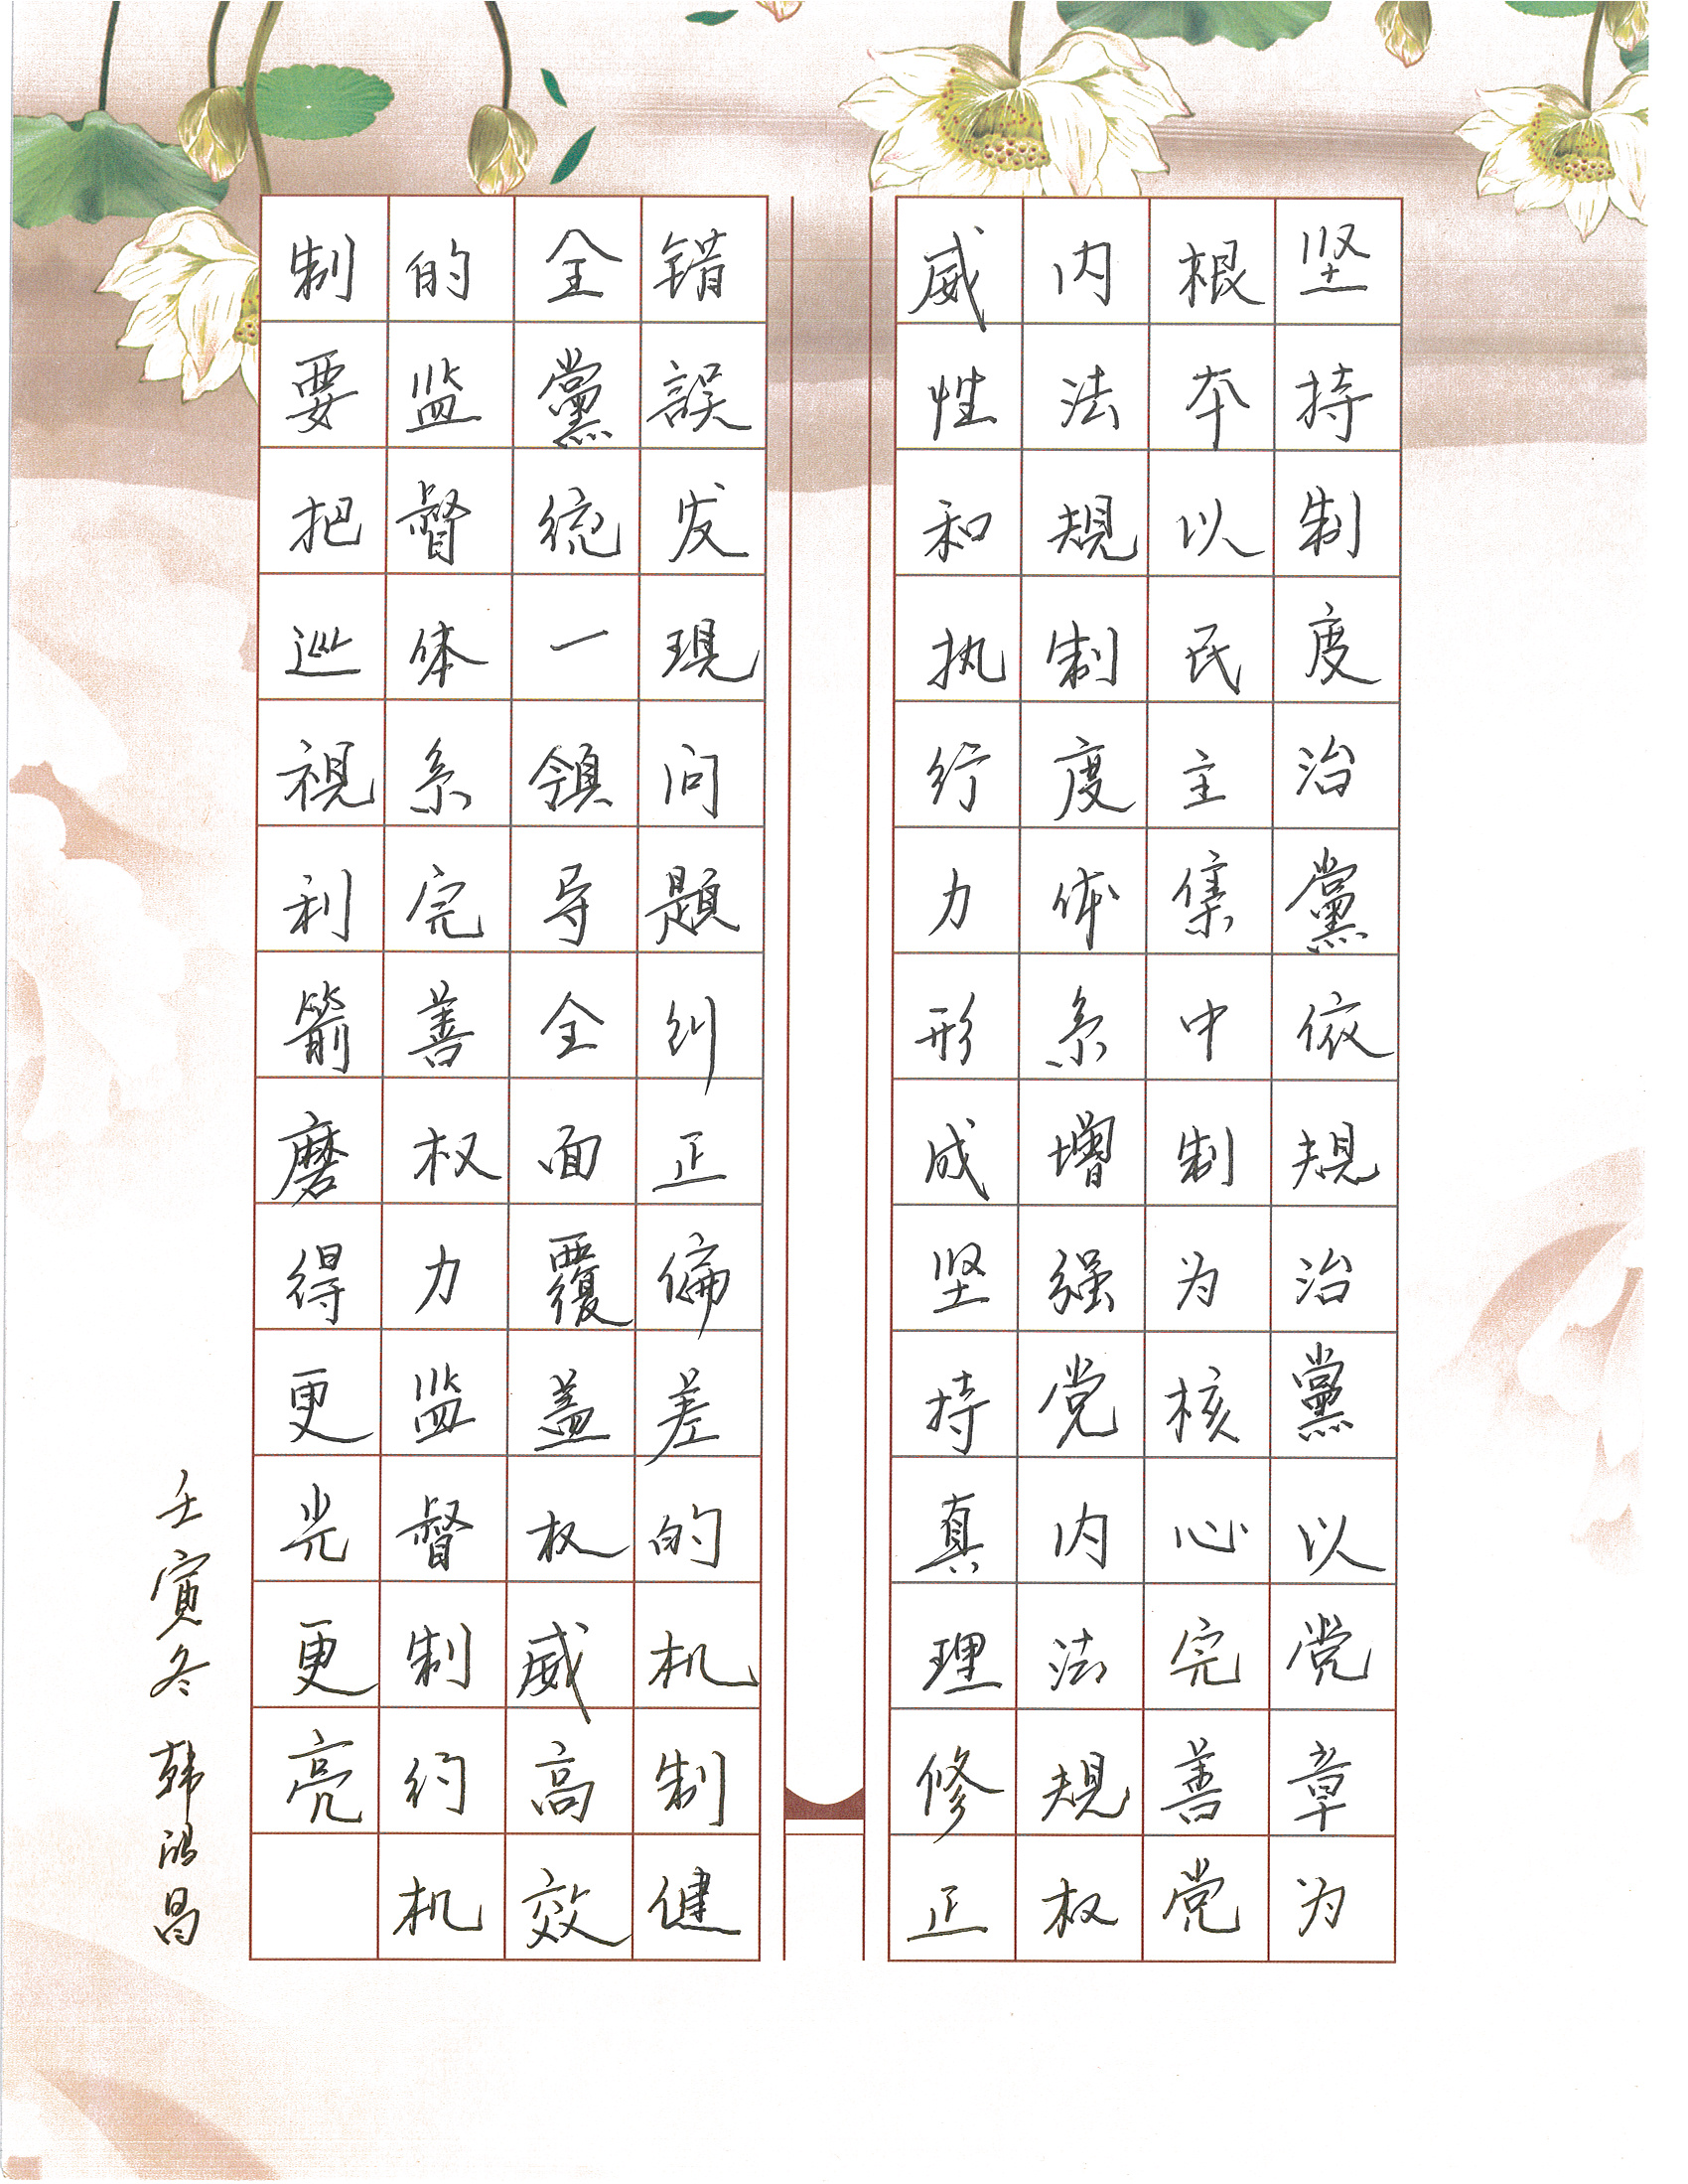 坚持制度治黨依規治黨以党章为
根本以民主集中制为核心完善党
内法規制度体系增强党内法規权
威性和执行力形成坚持真理修正
错誤发現问题纠正偏差的机制健
全黨统一领导全面覆盖权威高效
的监督体系完善权力监督制约机
制要把巡視利箭磨得更光更亮
壬寅冬 韩鸿昌